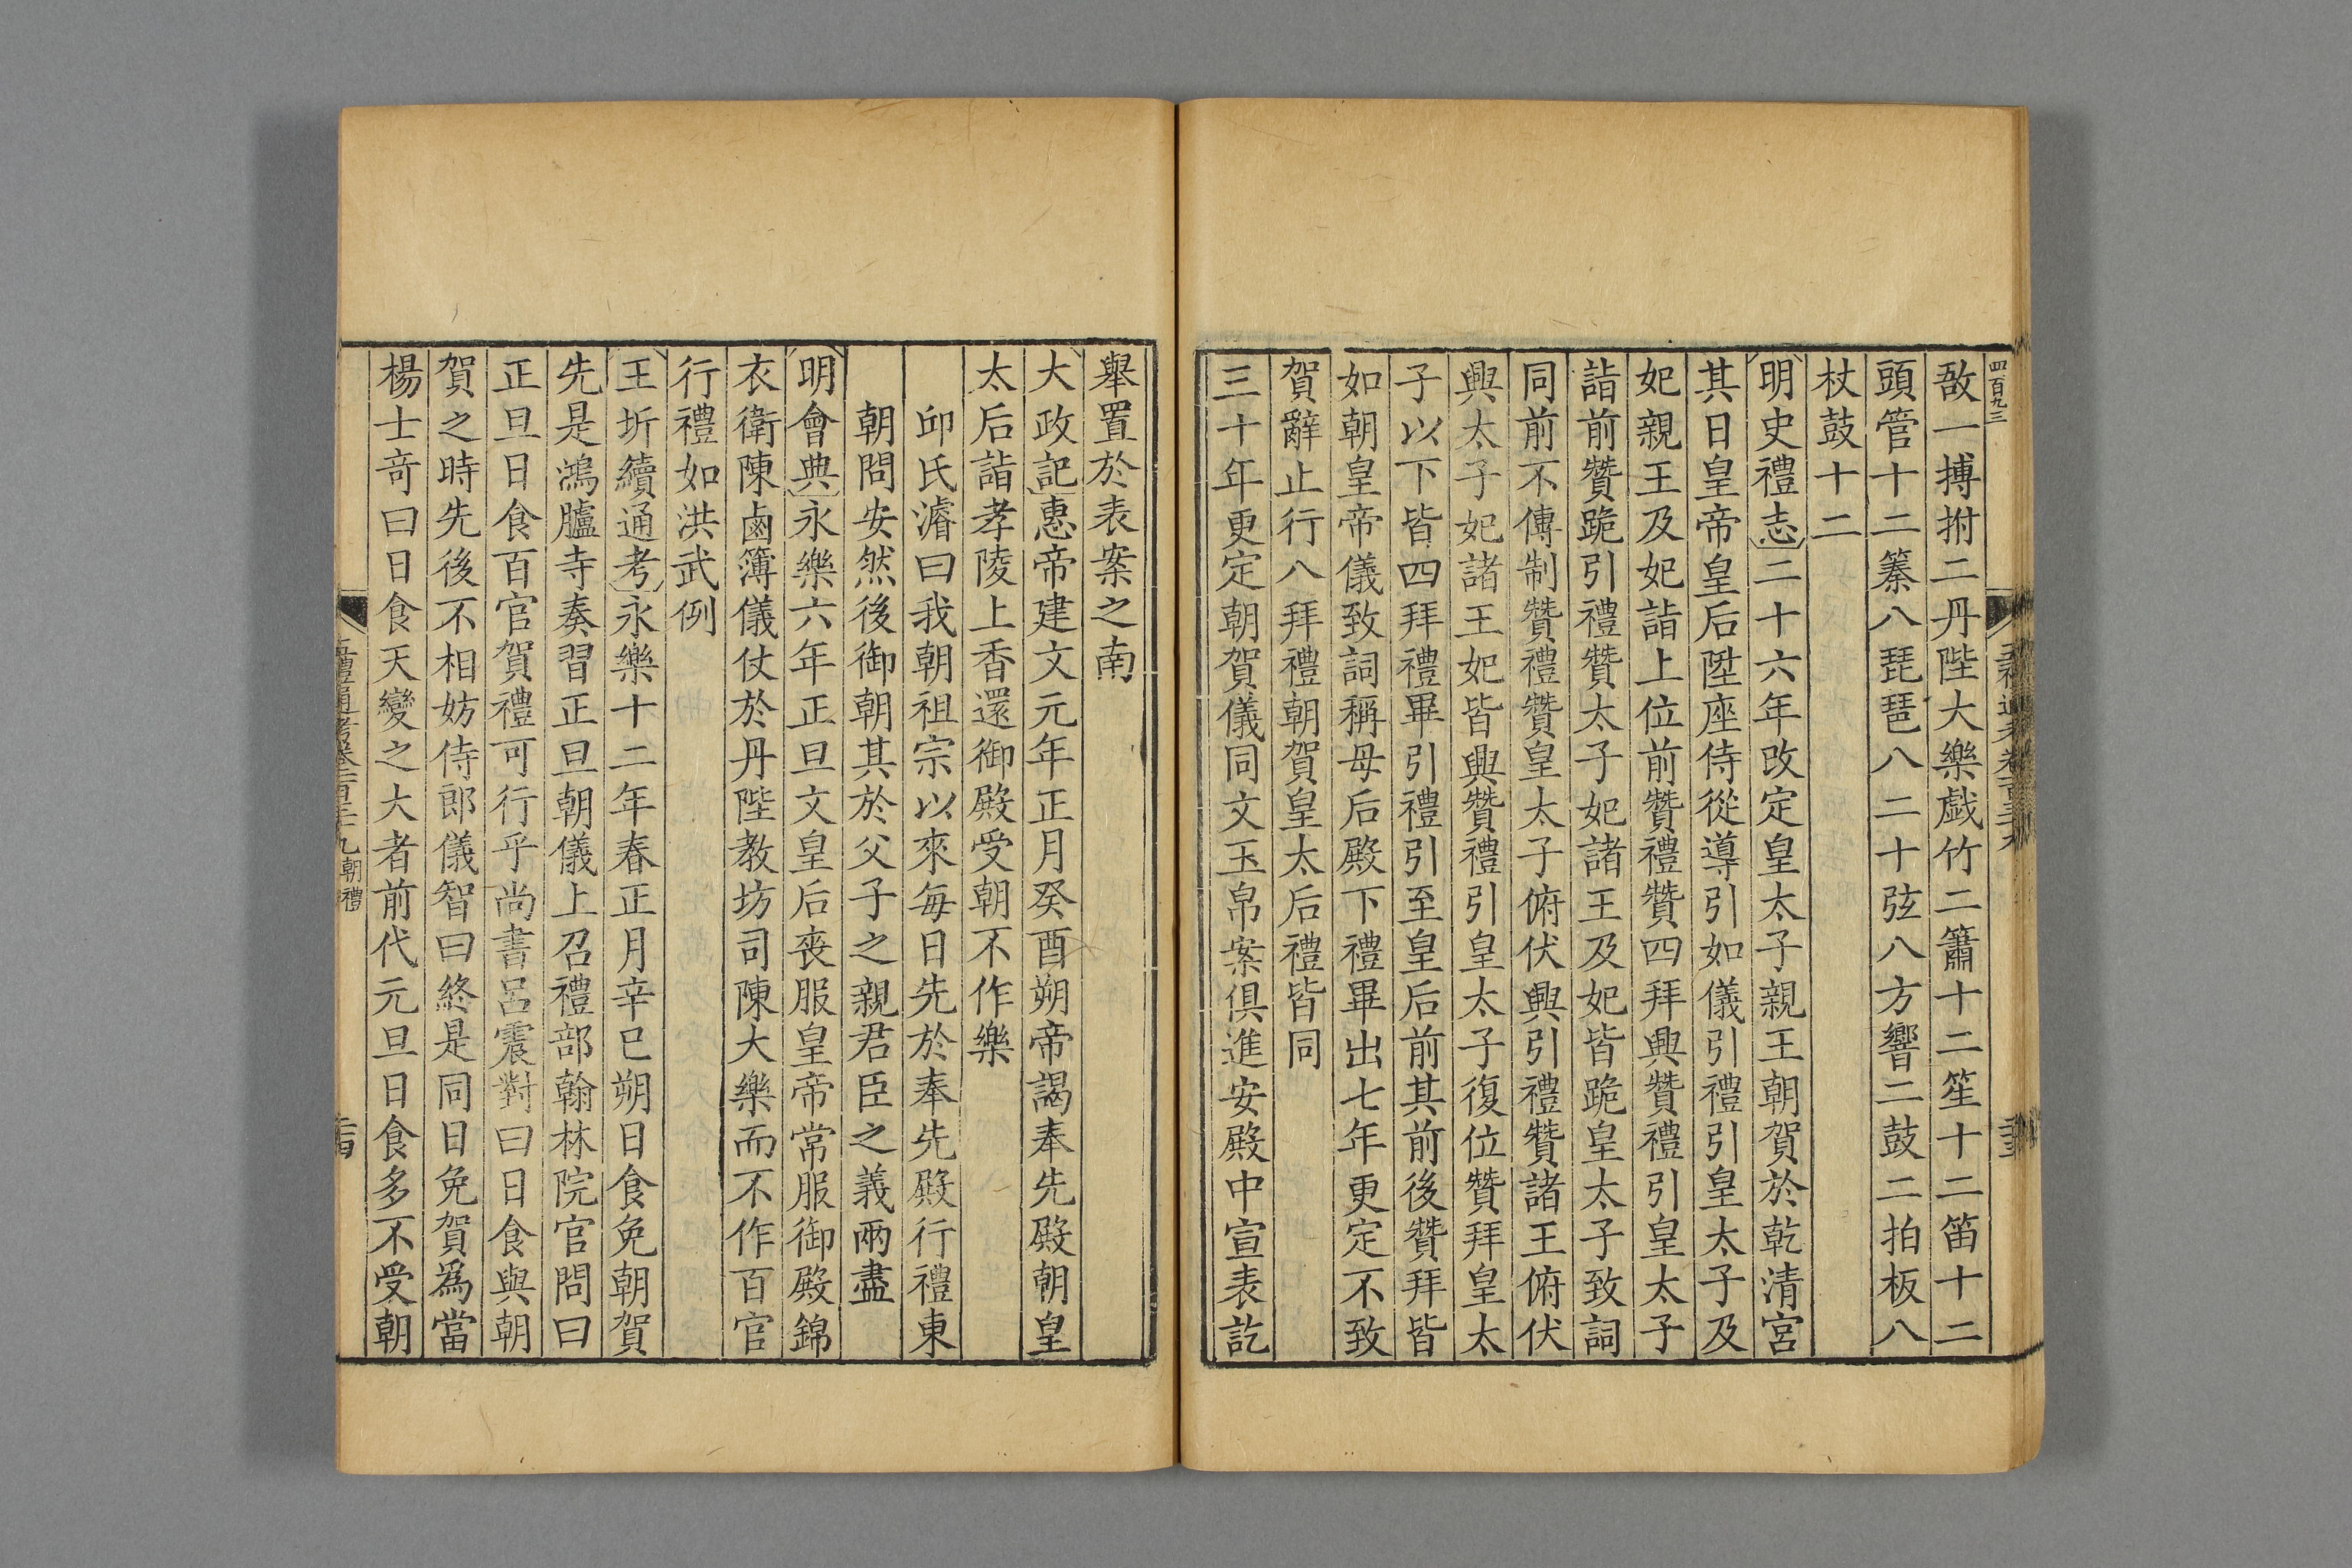 四百九三
敔一搏拊二丹陛大樂戲竹二簫十二笙十二笛十二
頭管十二𥱧八琵琶八二十弦八方響二鼓二拍板八
杖鼓十二
明史禮志二十六年改定皇太子親王朝賀於乾清宮
其日皇帝皇后陞座侍從導引如儀引禮引皇太子及
妃親王及妃詣上位前贊禮贊四拜興贊禮引皇太子
詣前贊跪引禮贊太子妃諸王及妃皆跪皇太子致詞
同前不傳制贊禮贊皇太子俯伏興引禮贊諸王俯伏
興太子妃諸王妃皆興贊禮引皇太子復位贊拜皇太
子以下皆四拜禮畢引禮引至皇后前其前後贊拜皆
如朝皇帝儀致詞稱母后殿下禮畢出七年更定不致
賀辭止行八拜禮朝賀皇太后禮皆同
三十年更定朝賀儀同文玉帛案俱進安殿中宣表訖
舉置於表案之南
大政記惠帝建文元年正月癸酉朔帝謁奉先殿朝皇
太后詣孝陵上香還御殿受朝不作樂
邱氏濬曰我朝祖宗以來每日先於奉先殿行禮東
朝問安然後御朝其於父子之親君臣之義兩盡
明會典永樂六年正旦文皇后喪服皇帝常服御殿錦
衣衛陳鹵簿儀仗於丹陛教坊司陳大樂而不作百官
行禮如洪武例
王圻續通考永樂十二年春正月辛巳朔日食免朝賀
先是鴻臚寺奏習正旦朝儀上召禮部翰林院官問曰
正旦日食百官賀禮可行乎尚書呂震對曰日食與朝
賀之時先後不相妨侍郎儀智曰終是同日免賀爲當
楊士奇曰日食天變之大者前代元旦日食多不受朝
五禮通考卷一百三十九 朝禮